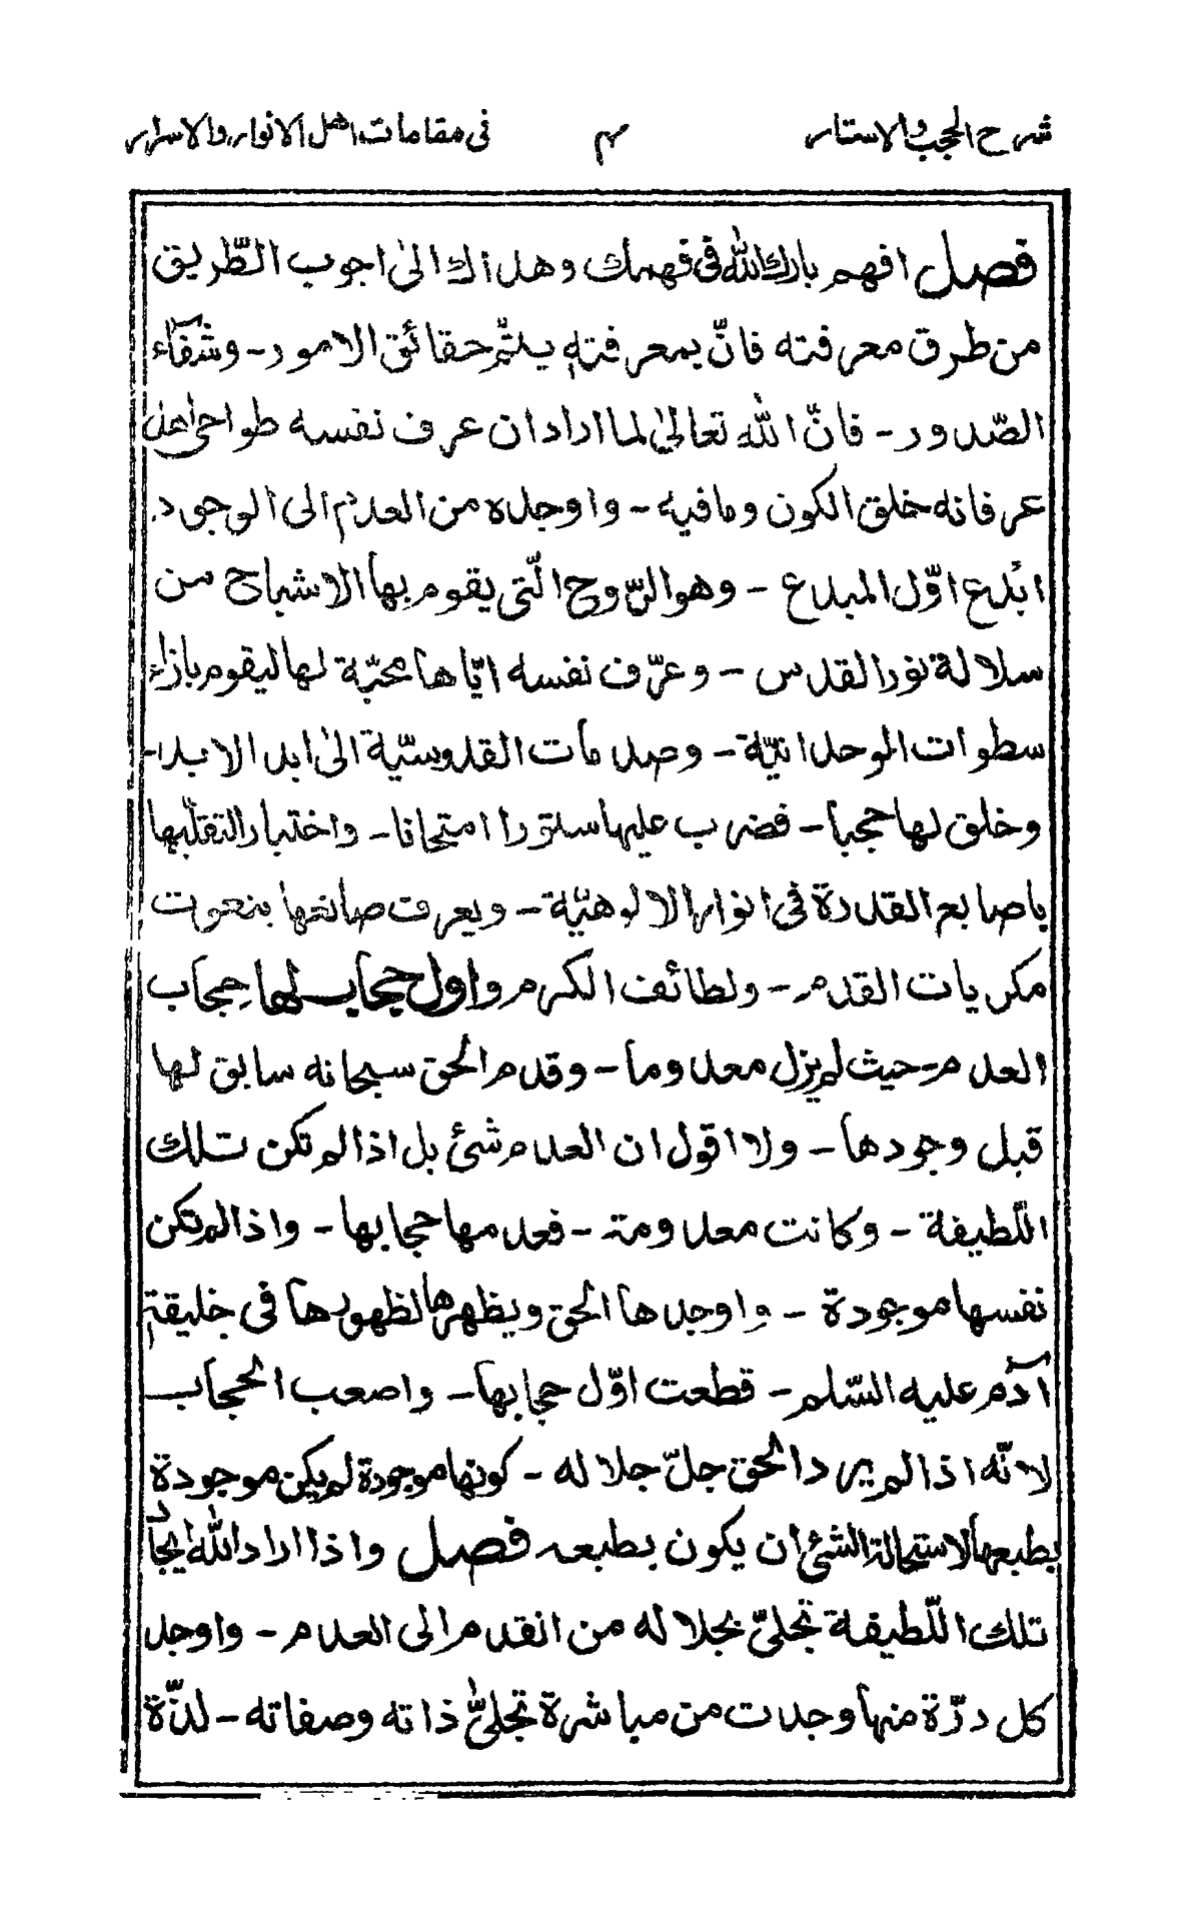 شرح الحجب والاستار ۴ فى مقامات اهل الانوار والاسرار
فصل افهم بارك الله فى فهمك وهداك الىٰ اجوب الطّريق
من طرق معرفته فانّ بمعرفته يلتئم حقائق الامور - وشفآء
الصّدور - فانّ الله تعالىٰ لما اراد ان عرف نفسه طواحى اهل
عرفانه خلق الكون ومافيه - واوجده من العدم الى الوجود
ابدع اوّل المبدع - وهو الرّوح الّتى يقوم بها الاشباح من
سلالة نور القدس - وعرّف نفسه ايّاها محبّة لها ليقوم بازاء
سطوات الوحدانيّة - وصدمات القدوسيّة الىٰ ابد الابد -
وخلق لها حجبا - فضرب عليها ستورا امتحانا - واختبارا لتقلّبها
باصابع القدرة فى انوار الالوهيّة - ويعرف صانعها بنعوت
مكريات القدم - ولطائف الكرم واول حجاب لها حجاب
العدم - حيث لم يزل معدوما - وقدم الحق سبحانه سابق لها
قبل وجودها - ولا اقول ان العدم شئ بل اذا لم تكن تلك
اللّطيفة - وكانت معدومة - فعدمها حجابها - واذا لم تكن
نفسها موجودة - واوجدها الحق ويظهرها لظهورها فى خليقته
آدم عليه السّلم - قطعت اوّل حجابها - واصعب الحجاب
لانّه اذا لم يرد الحق جلّ جلاله - كونها موجودة لم يكن موجودة
بطبعها لاستحالة الشئ ان يكون بطبعه فصل واذا اراد الله ايجاد
تلك اللّطيفة تجلىّ بجلاله من القدم الى العدم - واوجد
كل درّة منها وجدت من مباشرة تجلىّ ذاته وصفاته - لذّة